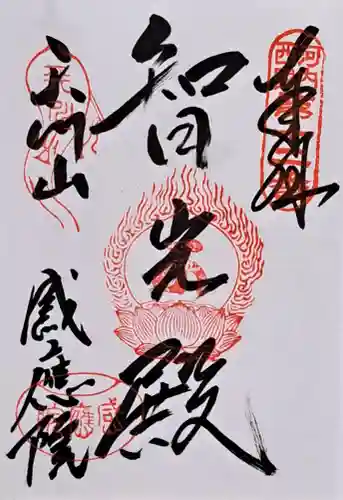 奉拝
智光殿
天川山
感應院